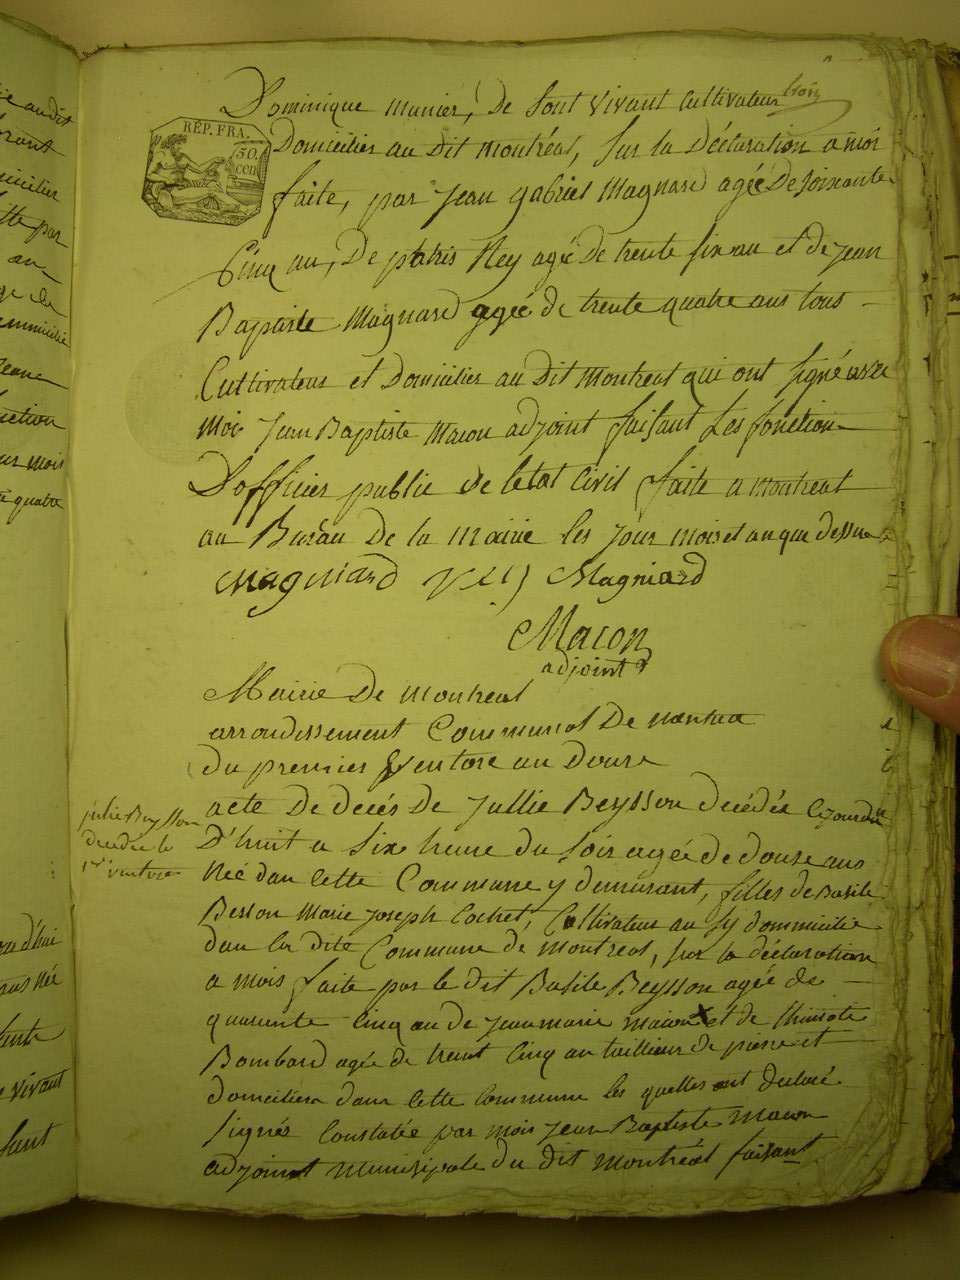 Dominique munier, De Sont vivant Cultivateur
RÉP. FRA.
50.
cen
Domicilier au Dit montréal, Sur la Déclaration a moi
faite, par Jean gabriel Magnard agée De soixante
Cinq an, De Rey agé De trente six an et de jean
Baptiste Magnard agéé de trente quatre ans tous
Cultivateur et Domicilier au Dit montreal qui ont Signé avec
moi Jean Baptiste Macon adjoint faisant Les fonction
D'officier public de letat Civil faite a montreal
au Bureau De la Mairie les jour mois et an que dessu
Magniard Rey Magniard
Macon
adjoint
Mairie De montreal
arrondissement Communal De nantua
du premier Ventose an Douse
acte De decés De Jullie Beysson decédée cejourdu
julie Beysson
décédée le
1er ventose
D'huit a Six heure du Soir agée de douse ans
Née dan Cette Commune y demurant, filles de Basile
Besson Marie Joseph Cochet, Cultivateur au Sy dommicilie
dan la dite Commune de Montreal, sur la déclaration
a mois faite par le dit Basile Beysson agée de
quarante Cinq an de Jean marie Macon et de
Bombard agée de trent Cinq an tailleur de piere et
domicilier dans Cette Commune les quelles ont déclaré
Signés Constatée par mois Jean Baptiste Macon
adjoint Municipale du dit Montréal faisant